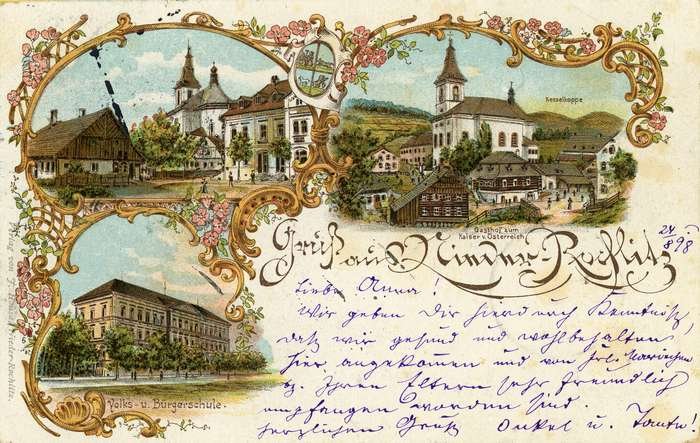 Kesselkoppe
Gasthof zum
Kaiser v. Österreich
Gruß aus Nieder-Rochlitz
24/8 98
Volks- u. Bürgerschule.
Verlag von Nieder-Rochlitz.
Liebe Anna!
Wir geben Dir hierdurch Kenntnis
daß wir gesund und wohlbehalten
hier angekommen und von Frl. Mariechen
u. Ihren Eltern sehr freundlich
empfangen worden sind.
herzlichen Gruß Onkel u. Tante!